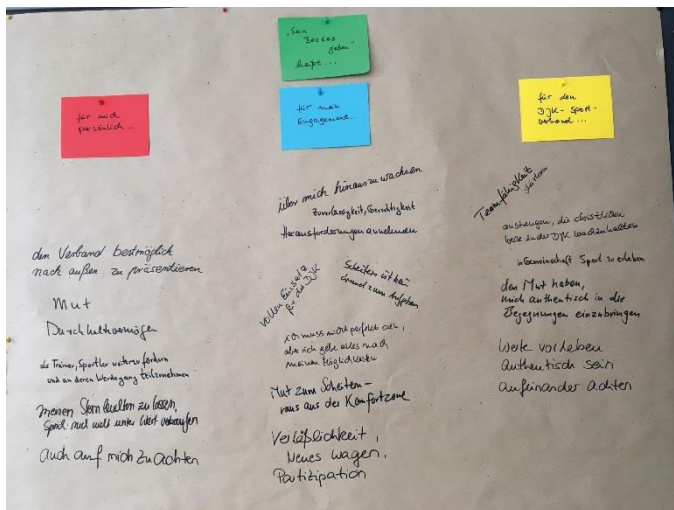 "Sein
Bestes
geben"
heißt...
für mich
persönlich...
den Verband bestmöglich
nach außen zu präsentieren
Mut
Durchhaltevermögen
als Trainer, Sportler
und an deren Werdegang teilzunehmen
meinen Stern leuchten zu lassen,
mich nicht unter Wert verkaufen
auch auf mich zu achten
für mein
Engagement...
über mich hinauszuwachsen
Zuverlässigkeit, Gerechtigkeit
Herausforderungen annehmen
vollen Einsatz
für die DJK
Scheitern ist kein
Grund zum Aufgeben
ich muss nicht perfekt sein,
aber ich gebe alles nach
meinen Möglichkeiten
Mut zum Scheitern –
raus aus der Komfortzone
Verläßlichkeit,
Neues wagen,
Partizipation
für den
DJK-Sport-
verband...
Teamfähigkeit
stärken
anstrengen, die christlichen
in der DJK wachzuhalten
in Gemeinschaft Sport zu erleben
den Mut haben,
mich authentisch in die
Begegnungen einzubringen
Werte vorleben
authentisch sein
aufeinander achten